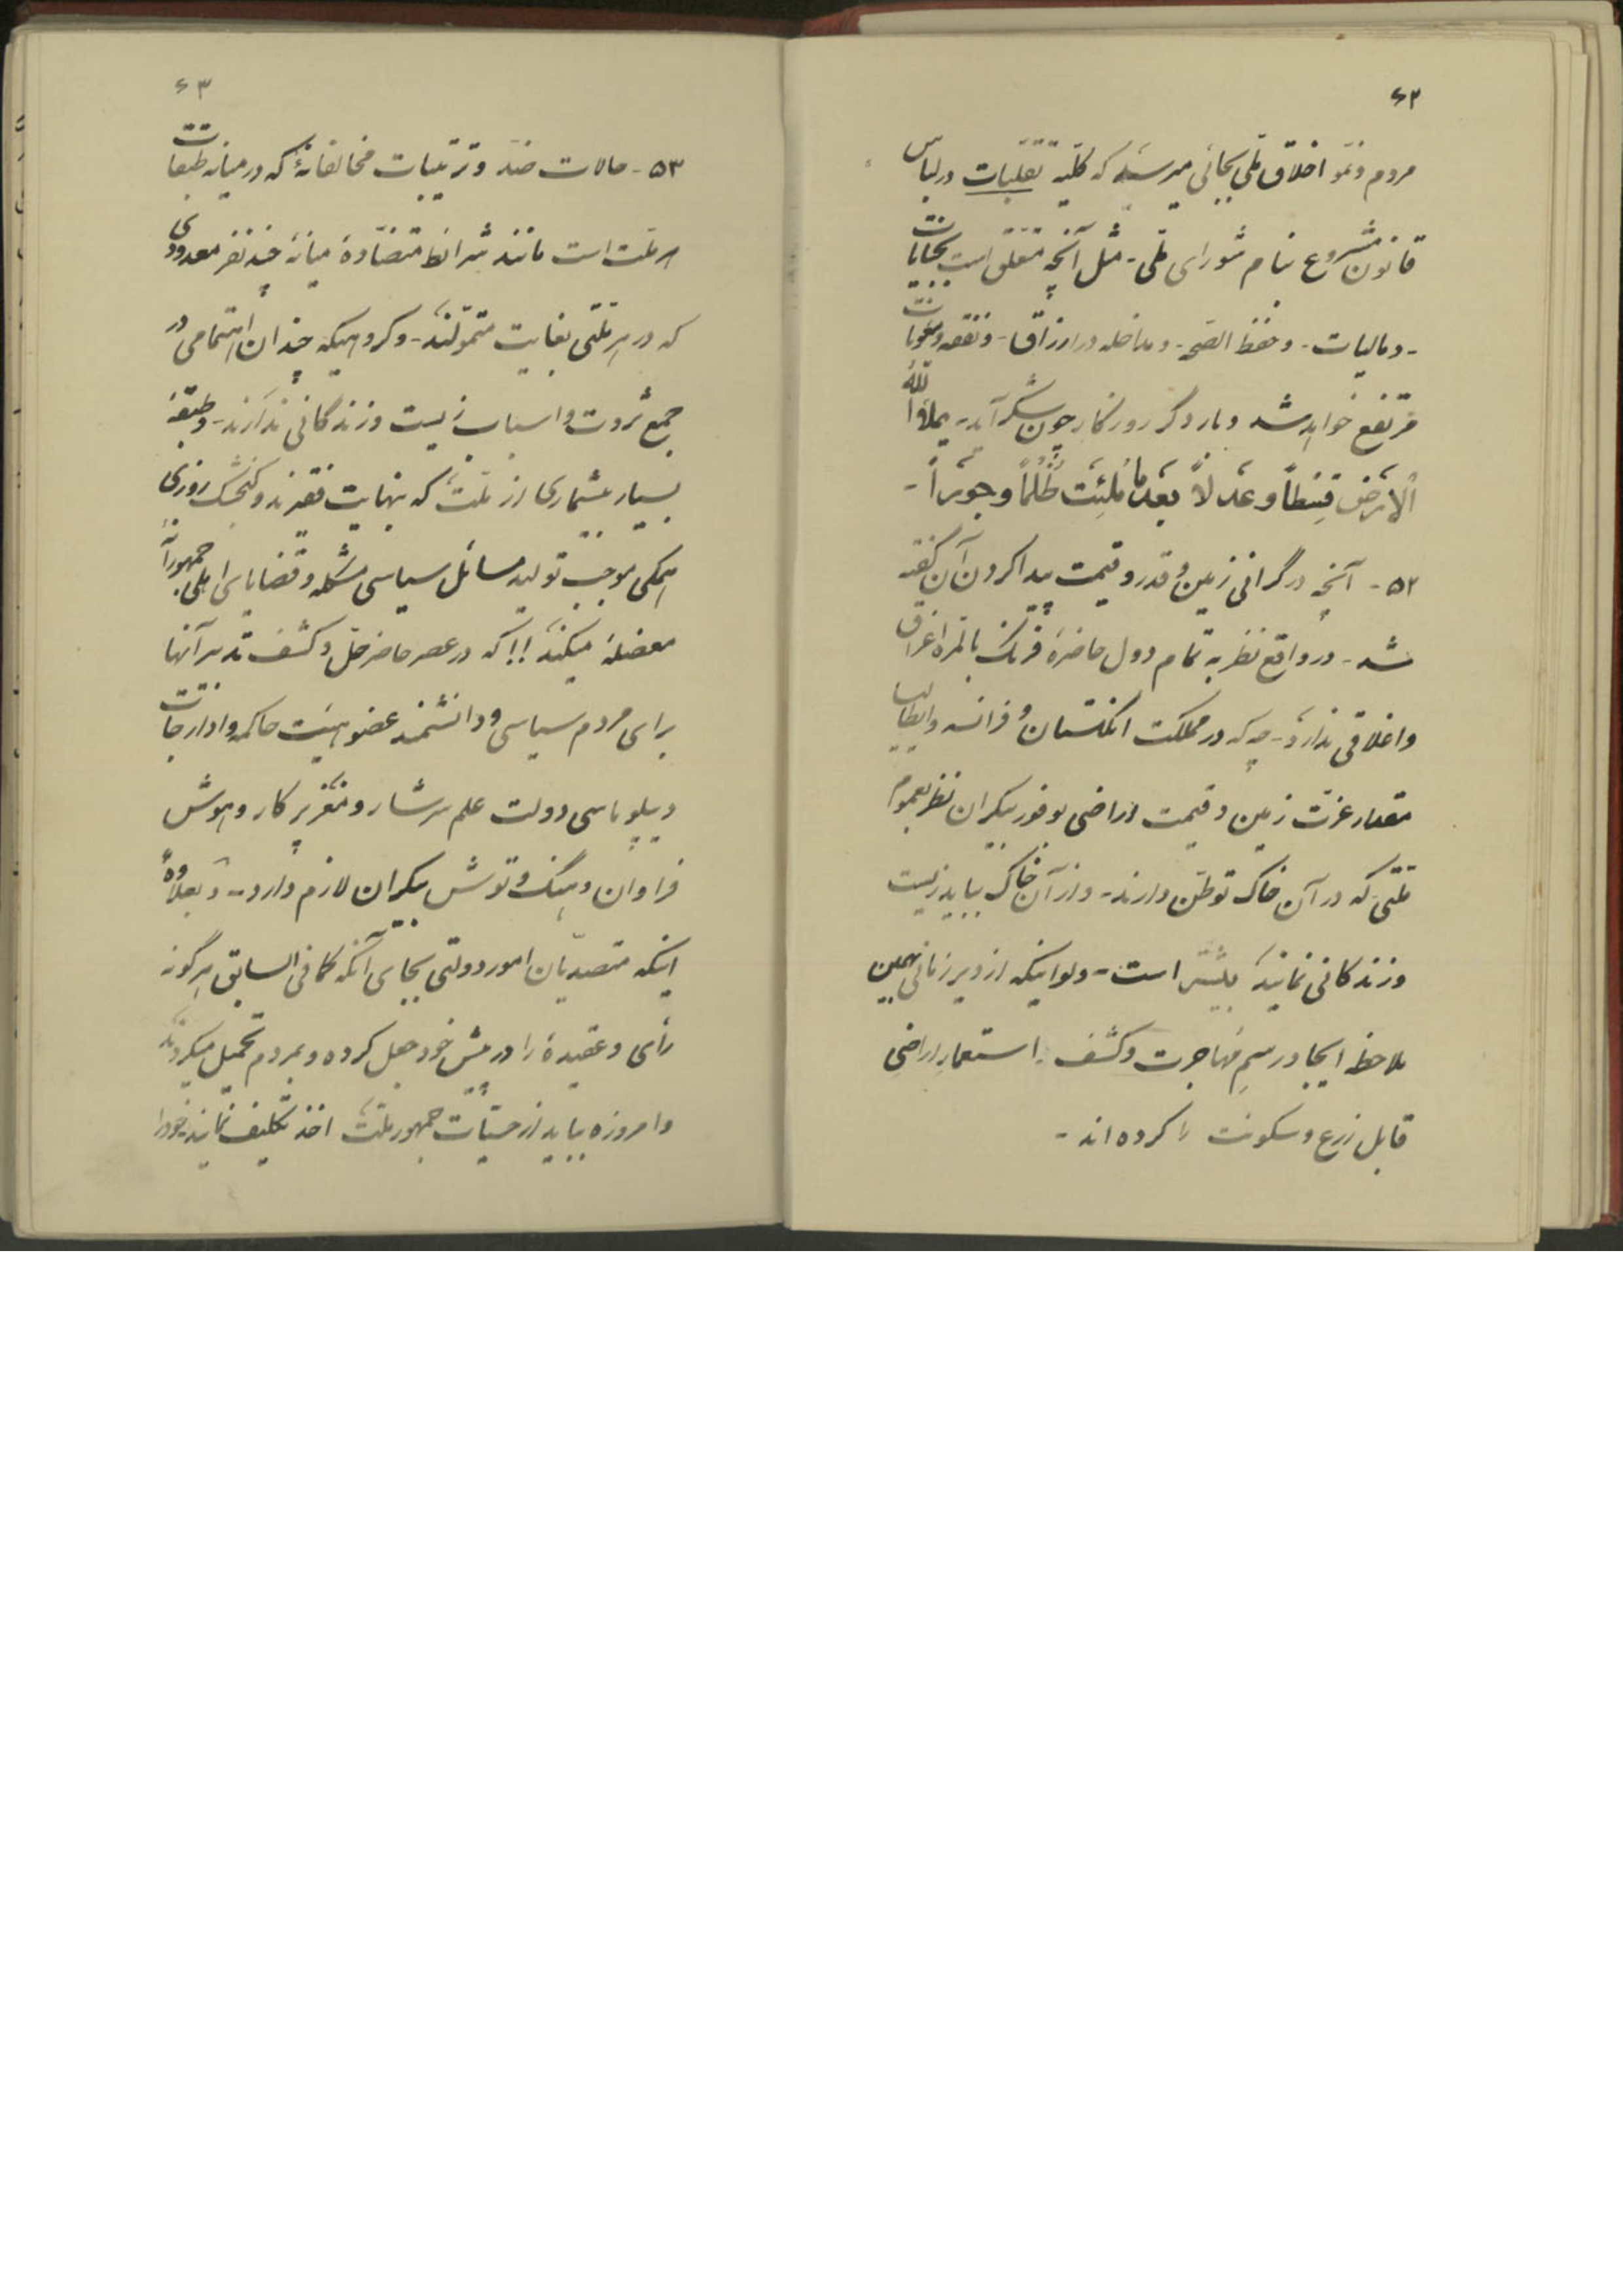 ۶۲
مردم و نمو اخلاق ملی بجائی میرسد که کلیه تقلبات در لباس
قانون مشروع بنام شورای ملی - مثل آنچه متعلق است بجنایات
- و مالیات - و حفظ الصحه - و مداخله در ارزاق - و نفقه و
مرتفع خواهد شد و بار دگر روزگار چون شکر آید - یملأ الله
الارض قسطاً و عدلاً بعدما ملئت ظلماً و جوراً -
۵۲ - آنچه در گرانی زمین و قدر و قیمت پیدا کردن آن گفته
شد - در واقع نظر به تمام دول حاضرهٔ فرنگ بالمره اغراق
و اغلاقی ندارد - چه که در مملکت انگلستان و فرانسه و ایطالیا
مقدار عزت زمین و قیمت اراضی بوفور بیکران نظر بعموم
ملتی که در آن خاک توطن دارند - و از آن خاک بباید زیست
و زندگانی نمایند بیشتر است - ولو اینکه از دیر زمانی بهمین
ملاحظه ایجاد رسمِ مهاجرت و کشف استعمارِ اراضیِ
قابل زرع و سکونت را کرده اند -
۶۳
۵۳ - حالات ضد و ترتیبات مخالفانهٔ که در میانه طبقات
هر ملت است مانند شرائط متضادهٔ میانهٔ چند نفر معدودی
که در هر ملتی بغایت متمولند - و گروهیکه چندان اهتمامی در
جمع ثروت و اسباب زیست و زندگانی ندارند - و طبقهٔ
بسیار بیشماری از ملت که بنهایت فقیرند و گنجشک روزی
همگی موجب تولید مسائل سیاسی مشکله و قضایای اهلی جمهورانهٔ
معضله میکند !! که در عصر حاضر حل و کشف تدبیر آنها
برای مردم سیاسی و دانشمند عضو هیئت حاکمه و ادارجات
دیپلوماسی دولت علم سرشار و مغز پر کار و هوش
فراوان و هنگ و توش بیکران لازم دارد - و بعلاوهٔ
اینکه متصدیان امور دولتی بجای آنکه کما فی السابق هر گونه
رأی و عقیدهٔ را در پیش خود جعل کرده و بمردم تحمیل میکردند
و امروزه بباید از حسیات جمهور ملت اخذ تکلیف نمایند خود را